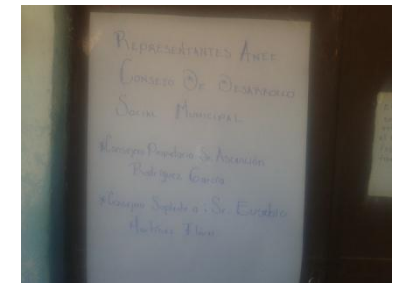 REPRESENTANTES ANTE
CONSEJO DE DESARROLLO
SOCIAL MUNICIPAL
*Consejero Propietario Sr. Ascención
Rodríguez García
*Consejero Suplente: Sr. Eusebio
Martínez